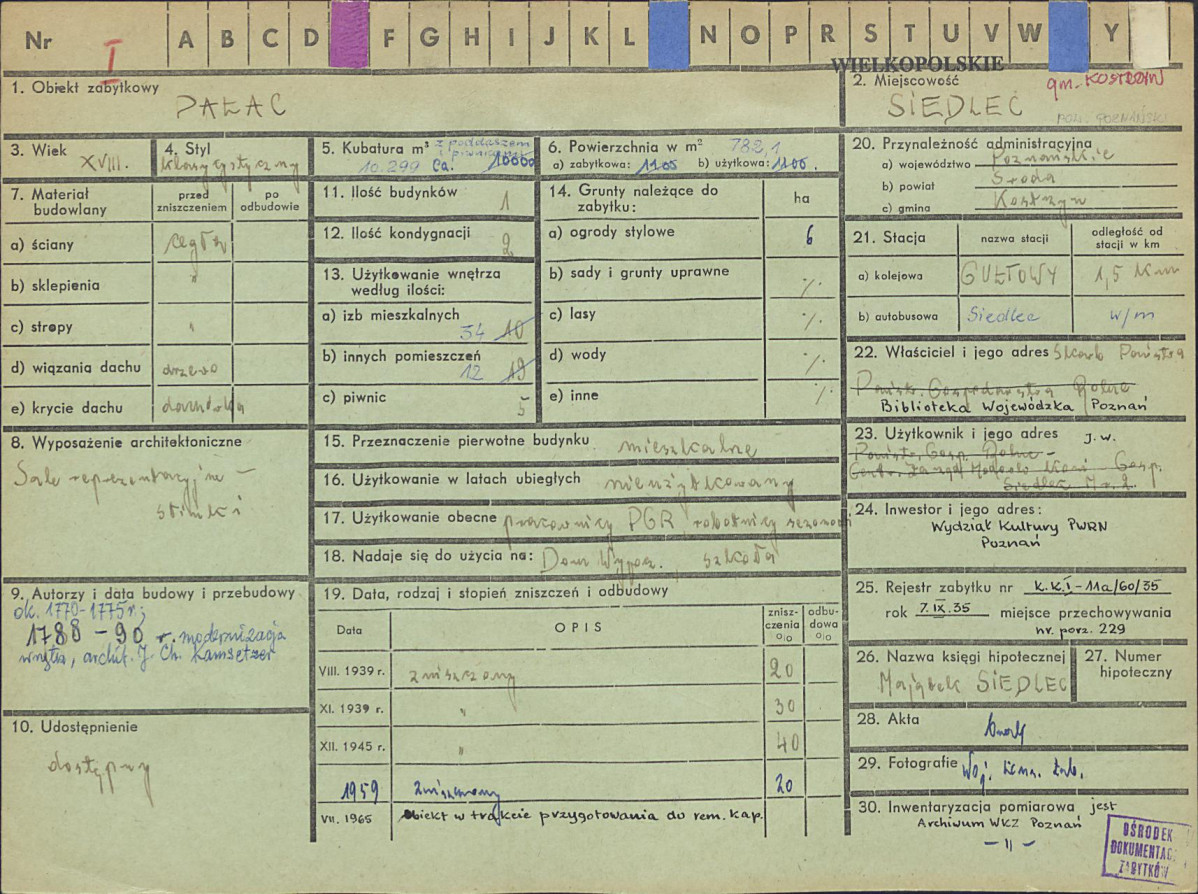 Nr I A B C D F G H I J K L N O P R S T U V W Y
WIELKOPOLSKIE
1. Obiekt zabytkowy
PAŁAC
2. Miejscowość
gm. KOSTRZYN
SIEDLEC
POW. POZNAŃSKI
3. Wiek
XVIII.
4. Styl
klasycystyczny
5. Kubatura m³ z poddaszem
i piwnicami
10.299 ca. 10000
6. Powierzchnia w m² 782,1
a) zabytkowa: 1100 b) użytkowa: 1100.
7. Materiał budowlany
przed zniszczeniem
po odbudowie
a) ściany cegła
b) sklepienia "
c) stropy "
d) wiązania dachu drzewo
e) krycie dachu dachówka
8. Wyposażenie architektoniczne
Sale reprezentacyjne –
stiuki
9. Autorzy i data budowy i przebudowy
ok. 1770-1775 r.;
1788 – 90 r. modernizacja
wnętrz, archit. J. Ch. Kamsetzer
10. Udostępnienie
dostępny
11. Ilość budynków 1
12. Ilość kondygnacji 2
13. Użytkowanie wnętrza
według ilości:
a) izb mieszkalnych
34 10
b) innych pomieszczeń
12 18
c) piwnic 5
14. Grunty należące do
zabytku:
ha
a) ogrody stylowe 6
b) sady i grunty uprawne ·/·
c) lasy ·/·
d) wody ·/·
e) inne ·/·
15. Przeznaczenie pierwotne budynku mieszkalne
16. Użytkowanie w latach ubiegłych nieużytkowany
17. Użytkowanie obecne pracownicy PGR, robotnicy sezonowi
18. Nadaje się do użycia na: Dom Wypocz., szkoła
19. Data, rodzaj i stopień zniszczeń i odbudowy
Data
OPIS
zniszczenia o|o
odbudowa o|o
VIII. 1939 r. zniszczony 20
XI. 1939 r. " 30
XII. 1945 r. " 40
1959 zniszczony 20
VII. 1965 Obiekt w trakcie przygotowania do rem. kap.
20. Przynależność administracyjna
a) województwo Poznańskie
b) powiat Środa
c) gmina Kostrzyn
21. Stacja
nazwa stacji
odległość od stacji w km
a) kolejowa GUŁTOWY 1,5 km
b) autobusowa Siedlec w/m
22. Właściciel i jego adres Skarb Państwa
Państw. Gospodarstwa Rolne
Biblioteka Wojewódzka Poznań
23. Użytkownik i jego adres j.w.
Państw. Gosp. Rolne –
Siedlec
24. Inwestor i jego adres:
Wydział Kultury PWRN
Poznań
25. Rejestr zabytku nr K.K.I-11a/60/35
rok 7.IX.35 miejsce przechowywania
nr. porz. 229
26. Nazwa księgi hipotecznej
Majątek SIEDLEC
27. Numer
hipoteczny
28. Akta
29. Fotografie Woj. Kons. Zab.
30. Inwentaryzacja pomiarowa jest
Archiwum WKZ Poznań
– 11 –
OŚRODEK
DOKUMENTACJI
ZABYTKÓW